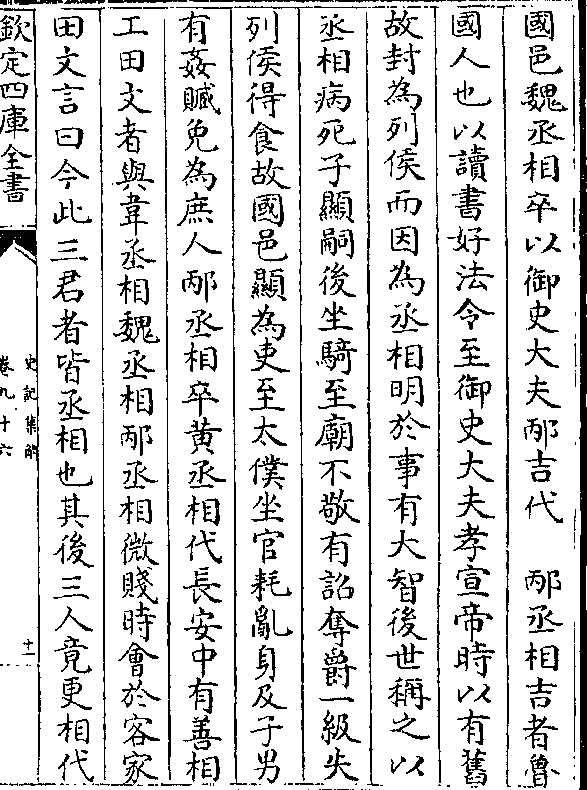 國邑魏丞相卒以御史大夫邴吉代　邴丞相吉者魯
國人也以讀書好法令至御史大夫孝宣帝時以有舊
故封為列侯而因為丞相明於事有大智後世稱之以
丞相病死子顯嗣後坐騎至廟不敬有詔奪爵一級失
列侯得食故國邑顯為吏至太僕坐官耗亂身及子男
有姦贓免為庶人邴丞相卒黄丞相代長安中有善相
工田文者與韋丞相魏丞相邴丞相微賤時會於客家
田文言曰今此三君者皆丞相也其後三人竟更相代
欽定四庫全書
史記集解
卷九十六
十二